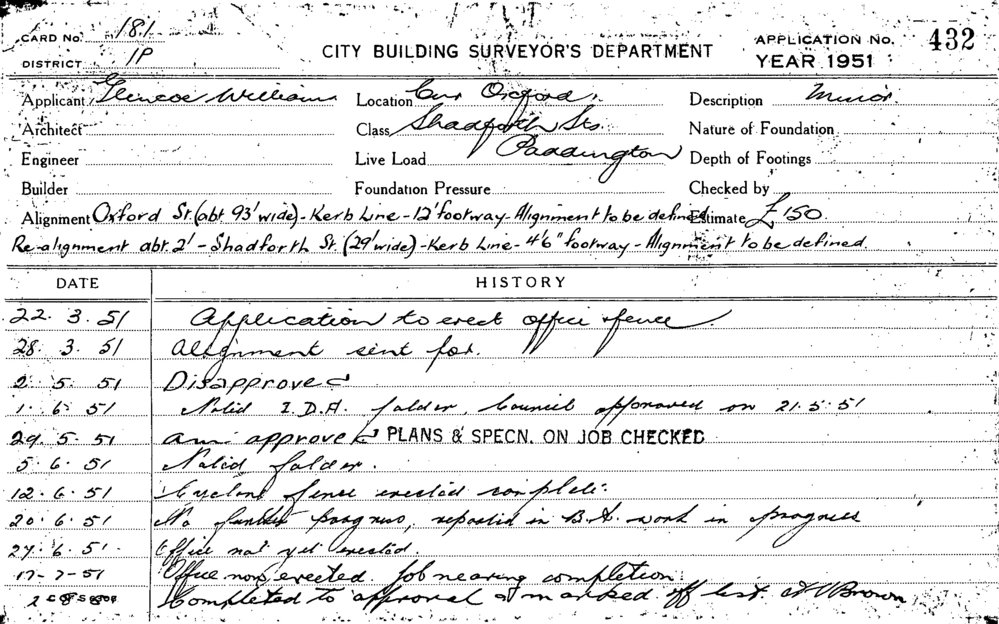 CARD No. 181 CITY BUILDING SURVEYOR'S DEPARTMENT APPLICATION No. 432
DISTRICT 1P YEAR 1951
Applicant Glencoe William Location Cnr Oxford, Description Minor.
Architect Class Shadforth Sts. Nature of Foundation
Engineer Live Load Paddington Depth of Footings
Builder Foundation Pressure Checked by
Alignment Oxford St. (abt 93' wide) - Kerb Line - 12' footway - Alignment to be defined Estimate £150
Re-alignment abt. 2' - Shadforth St. (29' wide) - Kerb Line - 4'6" footway - Alignment to be defined
DATE HISTORY
22. 3. 51 Application to erect office & fence.
28. 3. 51 Alignment sent for.
2. 5. 51 Disapproved
1. 6. 51 Noted I.D.A. folder, Council approved on 21.5.51
29. 5. 51 approved PLANS & SPECN. ON JOB CHECKED
5. 6. 51 Noted folder.
12. 6. 51 Cyclone fence erected complete.
20. 6. 51 No further progress, reported in B.A. work in progress
27. 6. 51. Office not yet erected.
17-7-51 Office now erected. Job nearing completion.
Completed to approval & marked off list. Brown